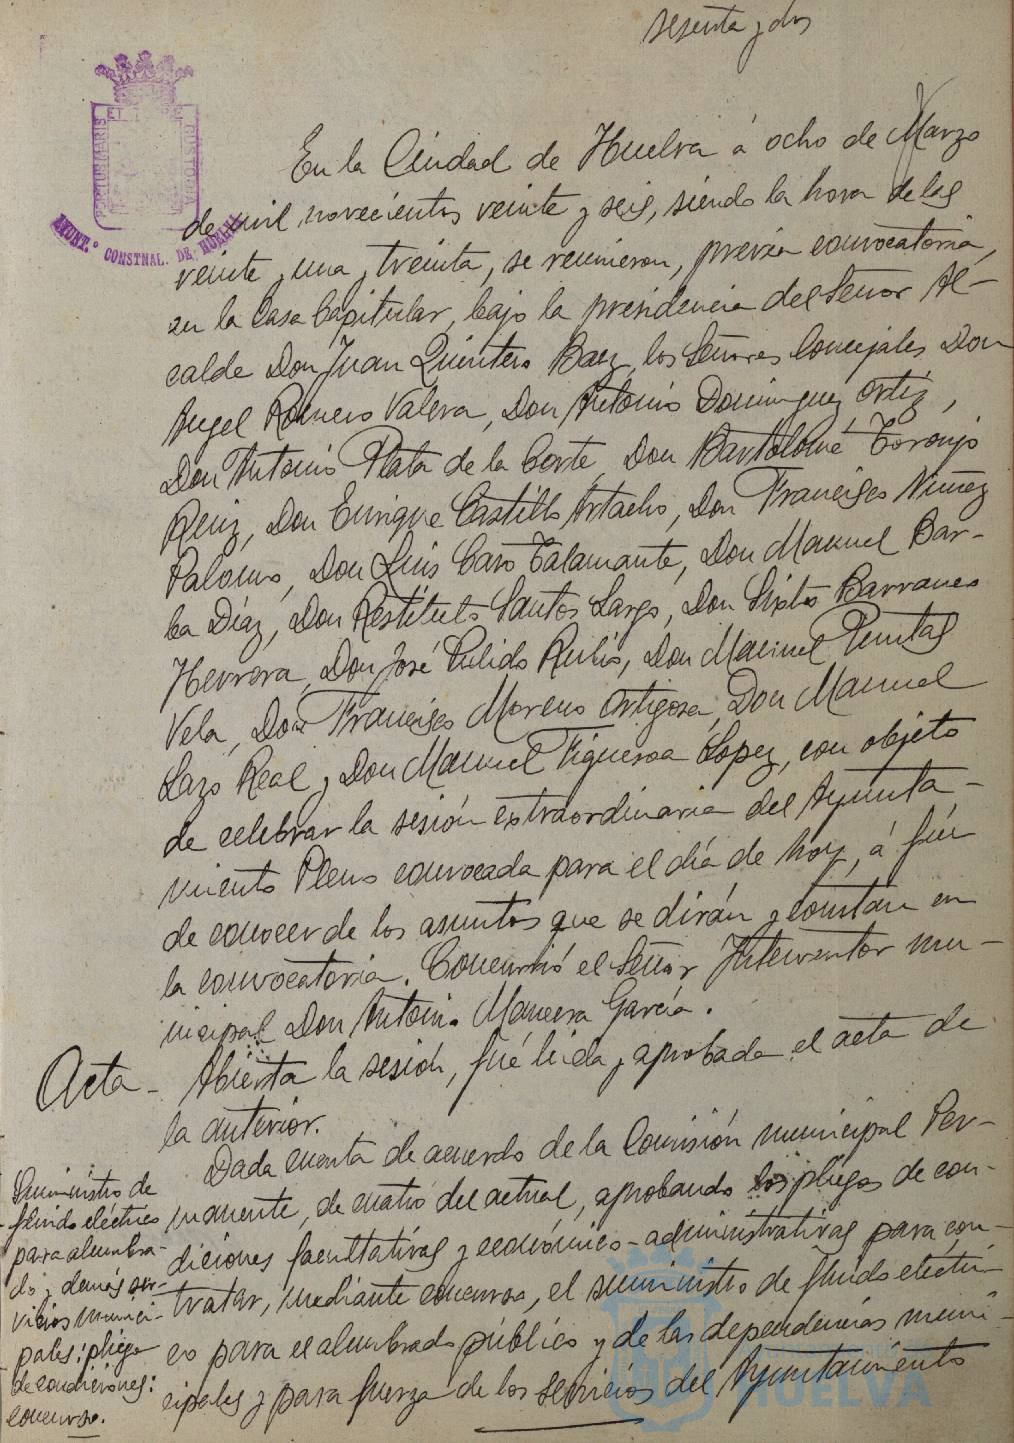 sesenta y dos
PORTUS MARIS ET CUSTODIA
AYUNT.º CONSTNAL. DE HUELVA
En la Ciudad de Huelva á ocho de Marzo
de mil novecientos veinte y seis, siendo la hora de las
veinte y una y treinta, se reunieron, previa convocatoria,
en la Casa Capitular, bajo la presidencia del Señor Al-
calde Don Juan Quintero Baez, los Señores Concejales Don
Angel Romero Valera, Don Antonio Dominguez Ortiz,
Don Antonio Plata de la Corte, Don Bartolomé Toronjo
Ruiz, Don Enrique Castillo Artacho, Don Francisco Nuñez
Palomo, Don Luis Caro Talamante, Don Manuel Bar-
ba Díaz, Don Restituto Santos Largo, Don Sixto Barranco
Herrera, Don José Pulido Rubio, Don Manuel Puntas
Vela, Don Francisco Moreno Ortigosa, Don Manuel
Lazo Real y Don Manuel Figueroa Lopez, con objeto
de celebrar la sesión extraordinaria del Ayunta-
miento Pleno convocada para el día de hoy, á fin
de conocer de los asuntos que se dirán y constan en
la convocatoria. Concurrió el Señor Interventor mu-
nicipal Don Antonio Mancera García.
Acta - Abierta la sesión, fué leida y aprobada el acta de
la anterior.
Dada cuenta de acuerdo de la Comisión municipal Per-
manente, de cuatro del actual, aprobando los pliegos de con-
diciones facultativas y económico-administrativas para con-
tratar, mediante concurso, el suministro de fluido eléctri-
co para el alumbrado público y de las dependencias muni-
cipales y para fuerza de los servicios del Ayuntamiento
Suministro de
fluido eléctrico
para alumbra-
do y demás ser-
vicios munici-
pales: pliego
de condiciones:
concurso.
HUELVA